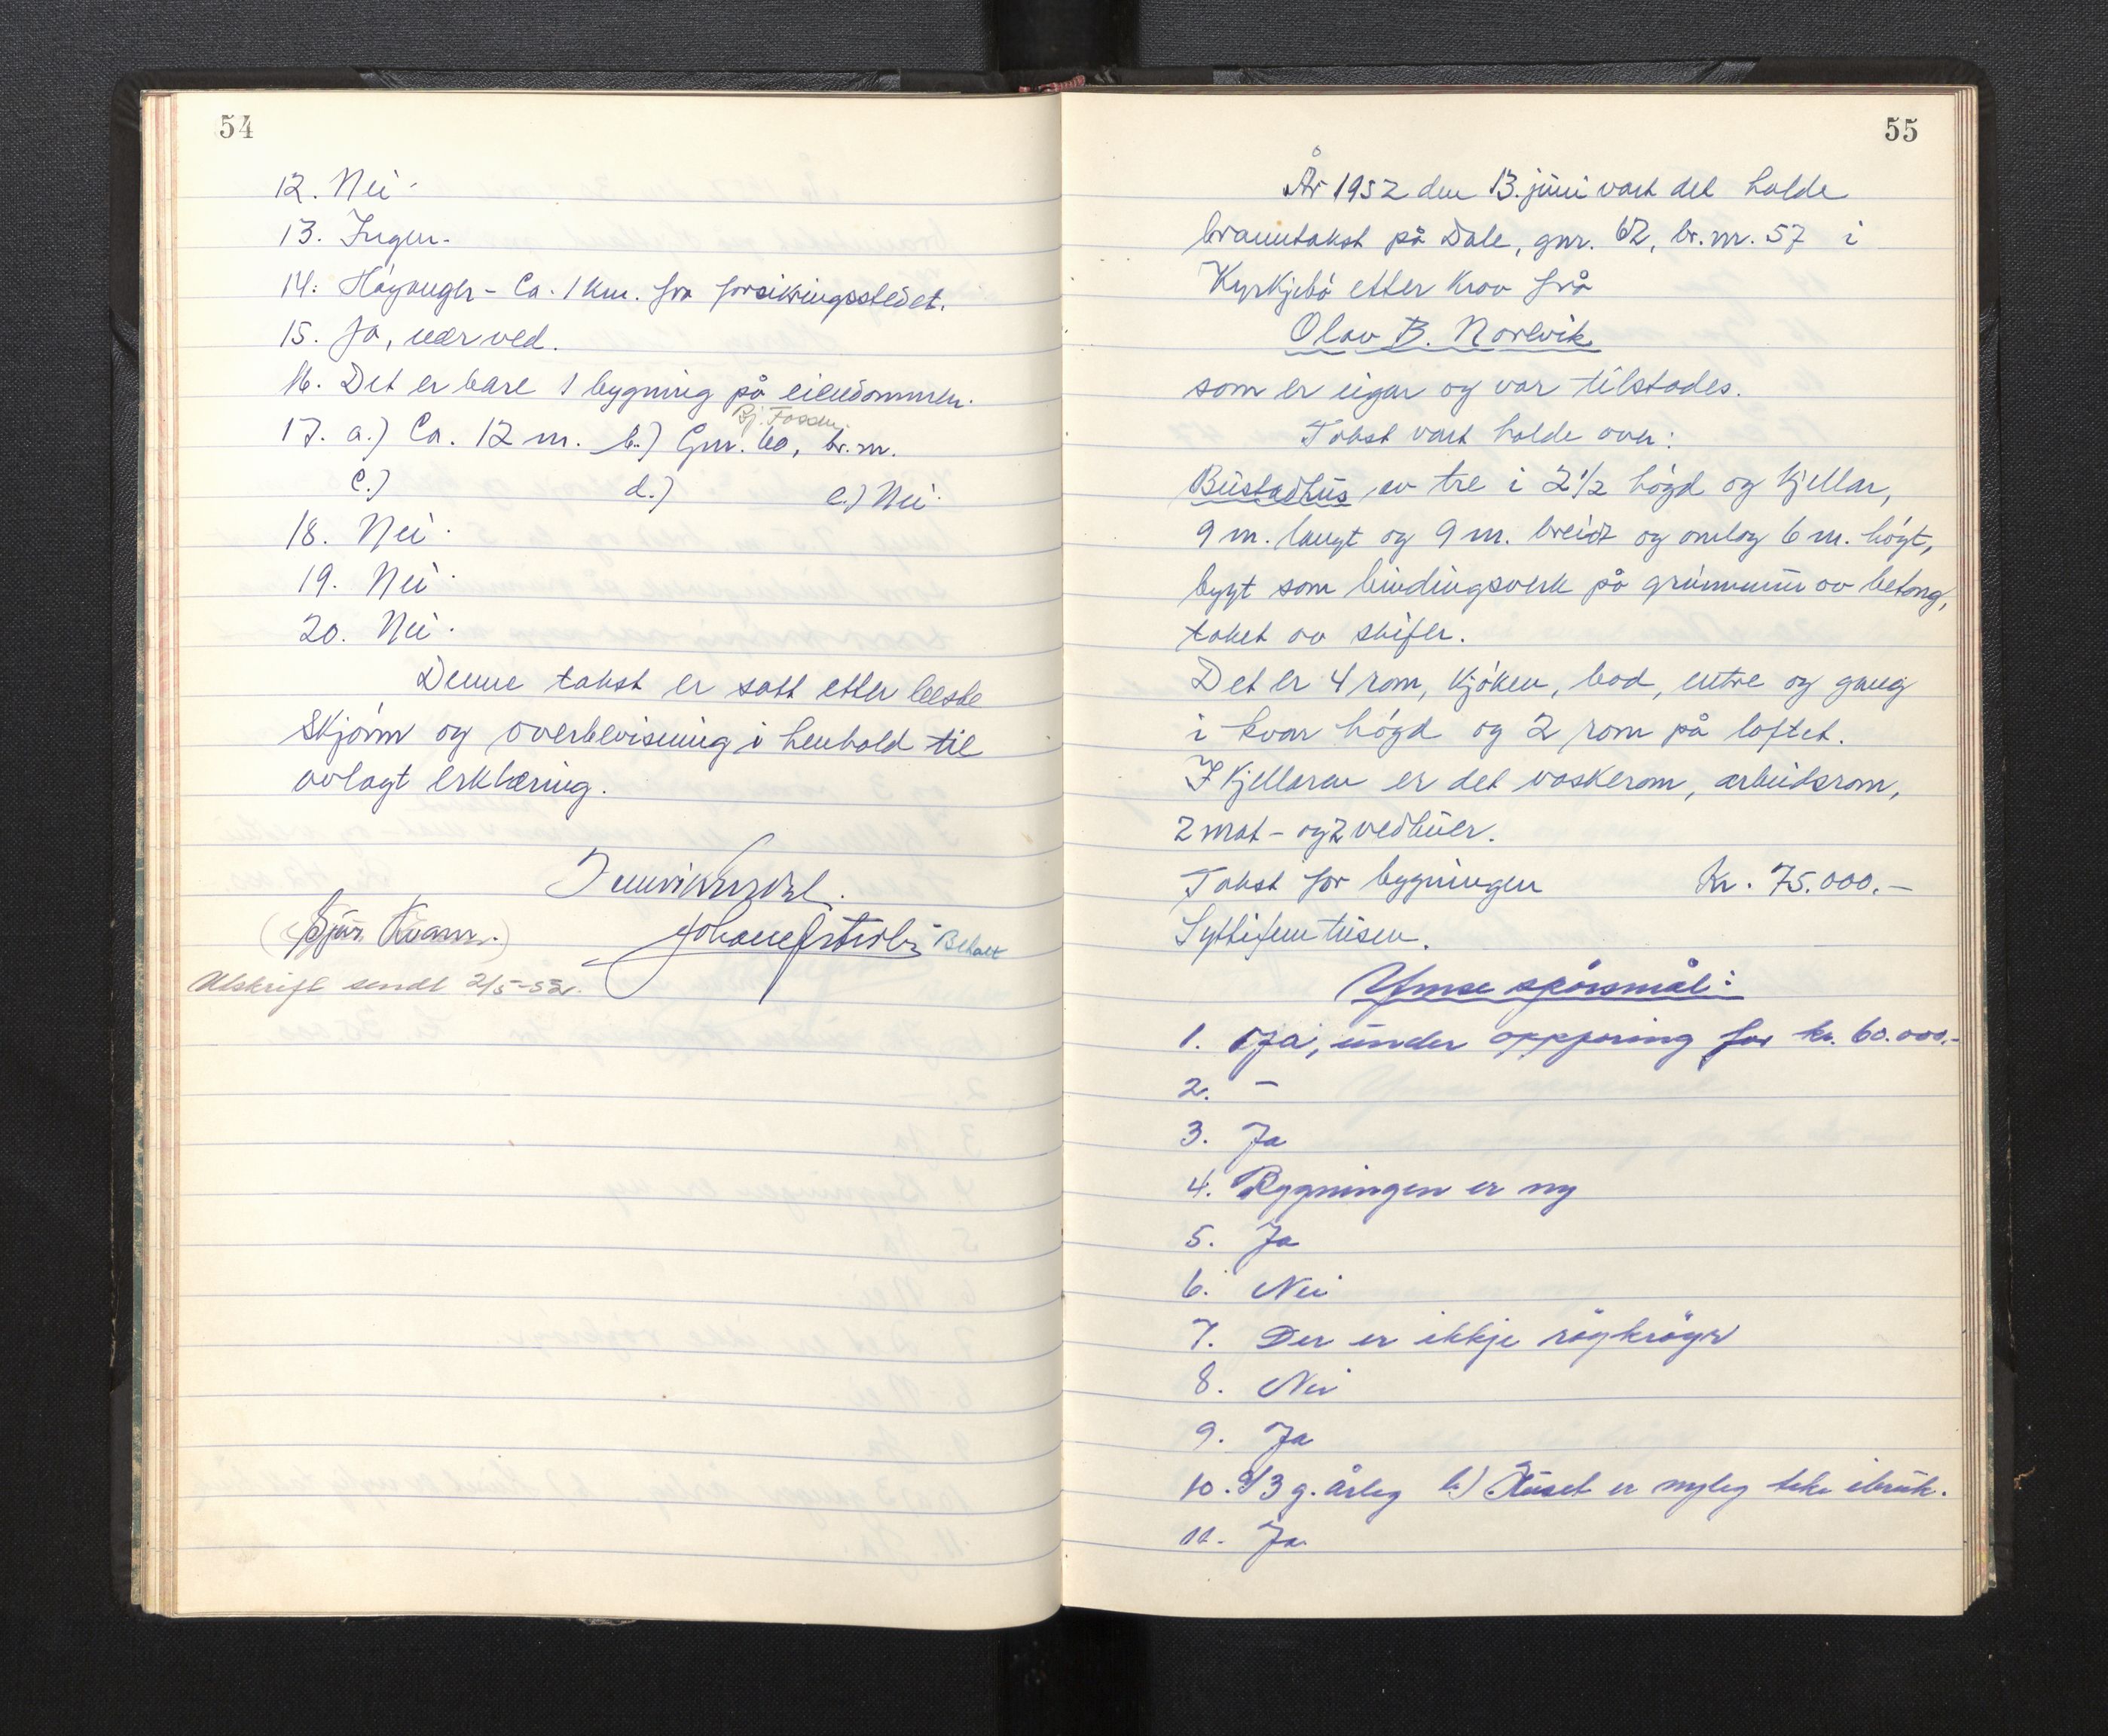 54
12. Nei.
13. Ingen.
14. Høyanger - Ca. 1 km. fra forsikringsstedet.
15. Ja, nær ved.
16. Det er bare 1 bygning på eiendommen.
Bj. Fossen
17. a.) Ca. 12 m. b.) Gnr. 60, br.nr.
c.) d.) e.) Nei.
18. Nei.
19. Nei.
20. Nei.
Denne takst er satt etter beste
skjønn og overbevisning i henhold til
avlagt erklæring.
(Sjur Kvamr.)
Behalt
Utskrift sendt 2/5-52.
55
År 1952 den 13. juni vart det halde
branntakst på Dale, gnr. 62, br.nr. 57 i
Kyrkjebø etter krav frå
Olav B. Norevik
som er eigar og var tilstades.
Takst vart halde over:
Bustadhus av tre i 2 1/2 høgd og kjellar,
9 m. langt og 9 m. breidt og omlag 6 m. høgt,
bygt som bindingsverk på grunnmur av betong,
taket av skifer.
Det er 4 rom, kjøken, bad, entre og gang
i kvar høgd og 2 rom på loftet.
I kjellaren er det vaskerom, arbeidsrom,
2 mat- og 2 vedbuer.
Takst for bygningen Kr. 75.000.-
Syttifem tusen.
Ymse spørsmål:
1. Ja, under oppføring for kr. 60.000.-
2. -
3. Ja
4. Bygningen er ny
5. Ja
6. Nei
7. Der er ikkje røgkrøyr
8. Nei
9. Ja
10. a) 3 g. årleg b.) Huset er nyleg teke ibruk.
11. Ja